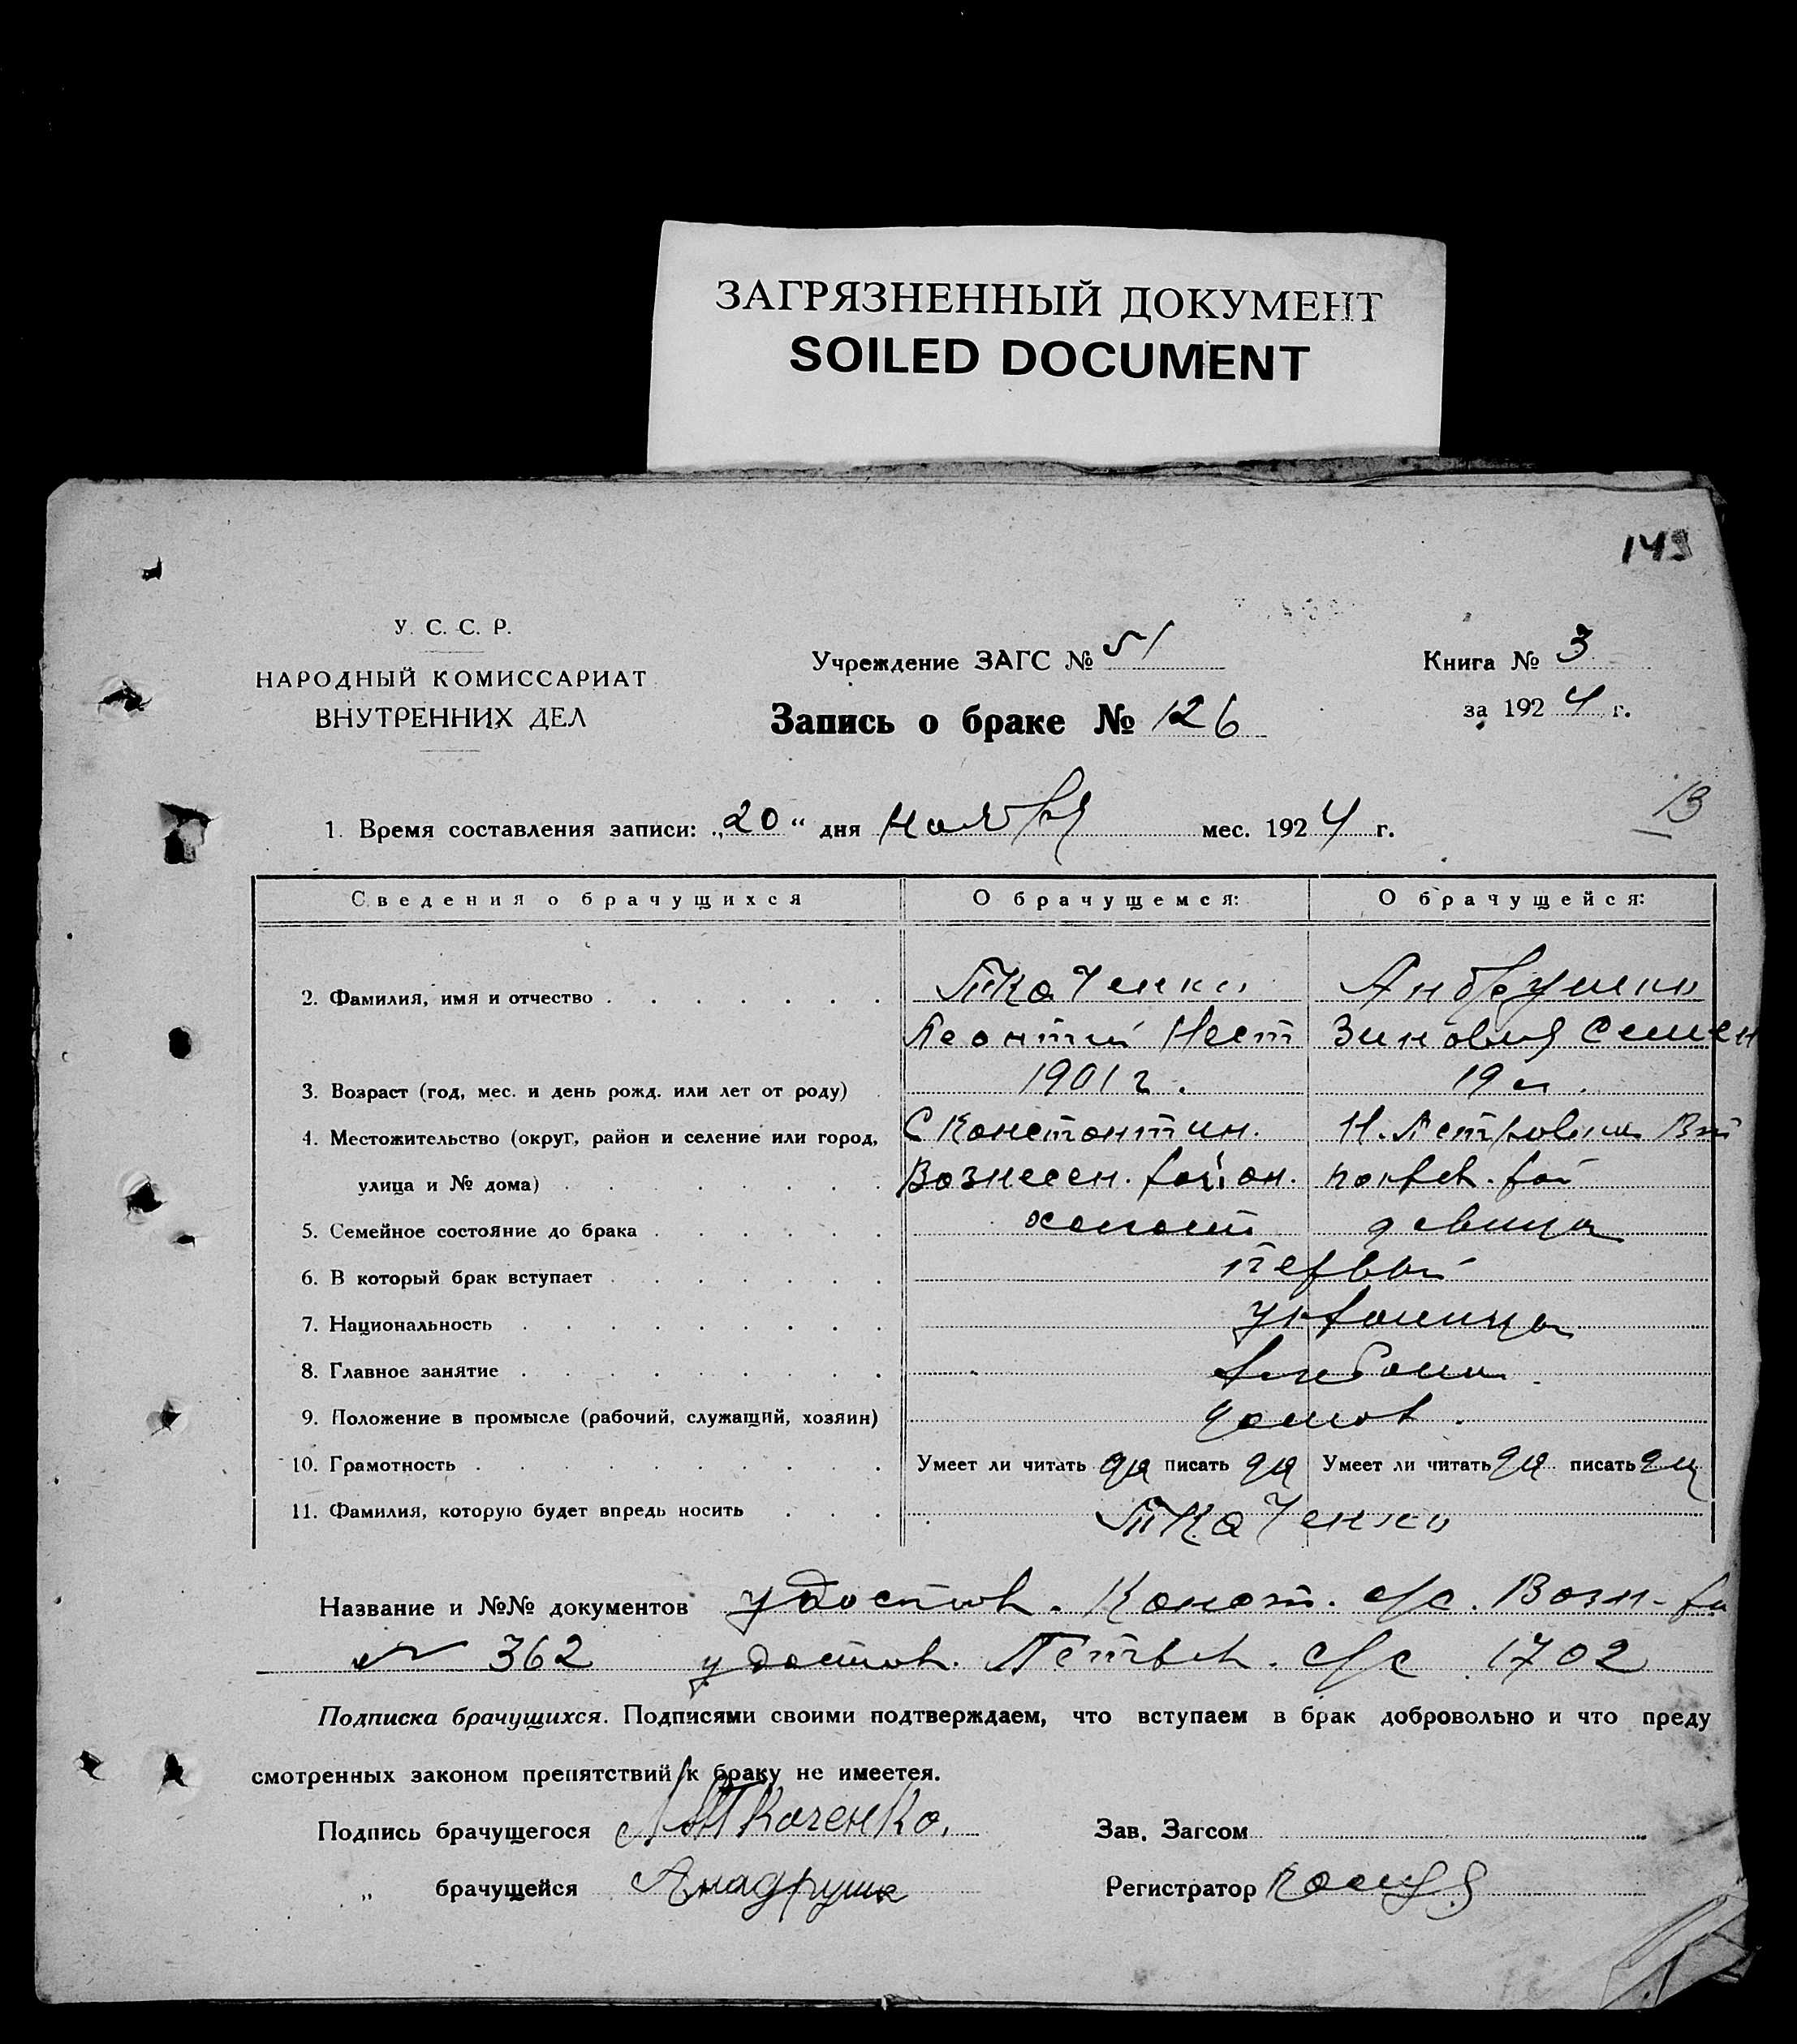 ЗАГРЯЗНЕННЫЙ ДОКУМЕНТ
SOILED DOCUMENT
У. С. С. Р.
НАРОДНЫЙ КОМИССАРИАТ
ВНУТРЕННИХ ДЕЛ
Учреждение ЗАГС № 51
Запись о браке № 126
Книга № 3
за 1924 г.
1. Время составления записи: „20“ дня ноября мес. 1924 г.
13
Сведения о брачущихся О брачущемся: О брачущейся:
2. Фамилия, имя и отчество Ткаченко Андрушко
Леонтий Нест Зиновия Семен
3. Возраст (год, мес. и день рожд. или лет от роду) 1901 г. 19 л.
4. Местожительство (округ, район и селение или город, С Константин. Н. Петровка
улица и № дома) Вознесен. район.
5. Семейное состояние до брака холост девица
6. В который брак вступает первый
7. Национальность украинцы
8. Главное занятие
9. Положение в промысле (рабочий, служащий, хозяин)
10. Грамотность Умеет ли читать да писать да Умеет ли читать да писать да
11. Фамилия, которую будет впредь носить Ткаченко
Название и №№ документов удостов. Конст. с/с. Возн. ра
№ 362 удостов. с/с 1702
Подписка брачущихся. Подписями своими подтверждаем, что вступаем в брак добровольно и что преду
смотренных законом препятствий к браку не имеется.
Подпись брачущегося Ткаченко. Зав. Загсом
„ брачущейся Регистратор